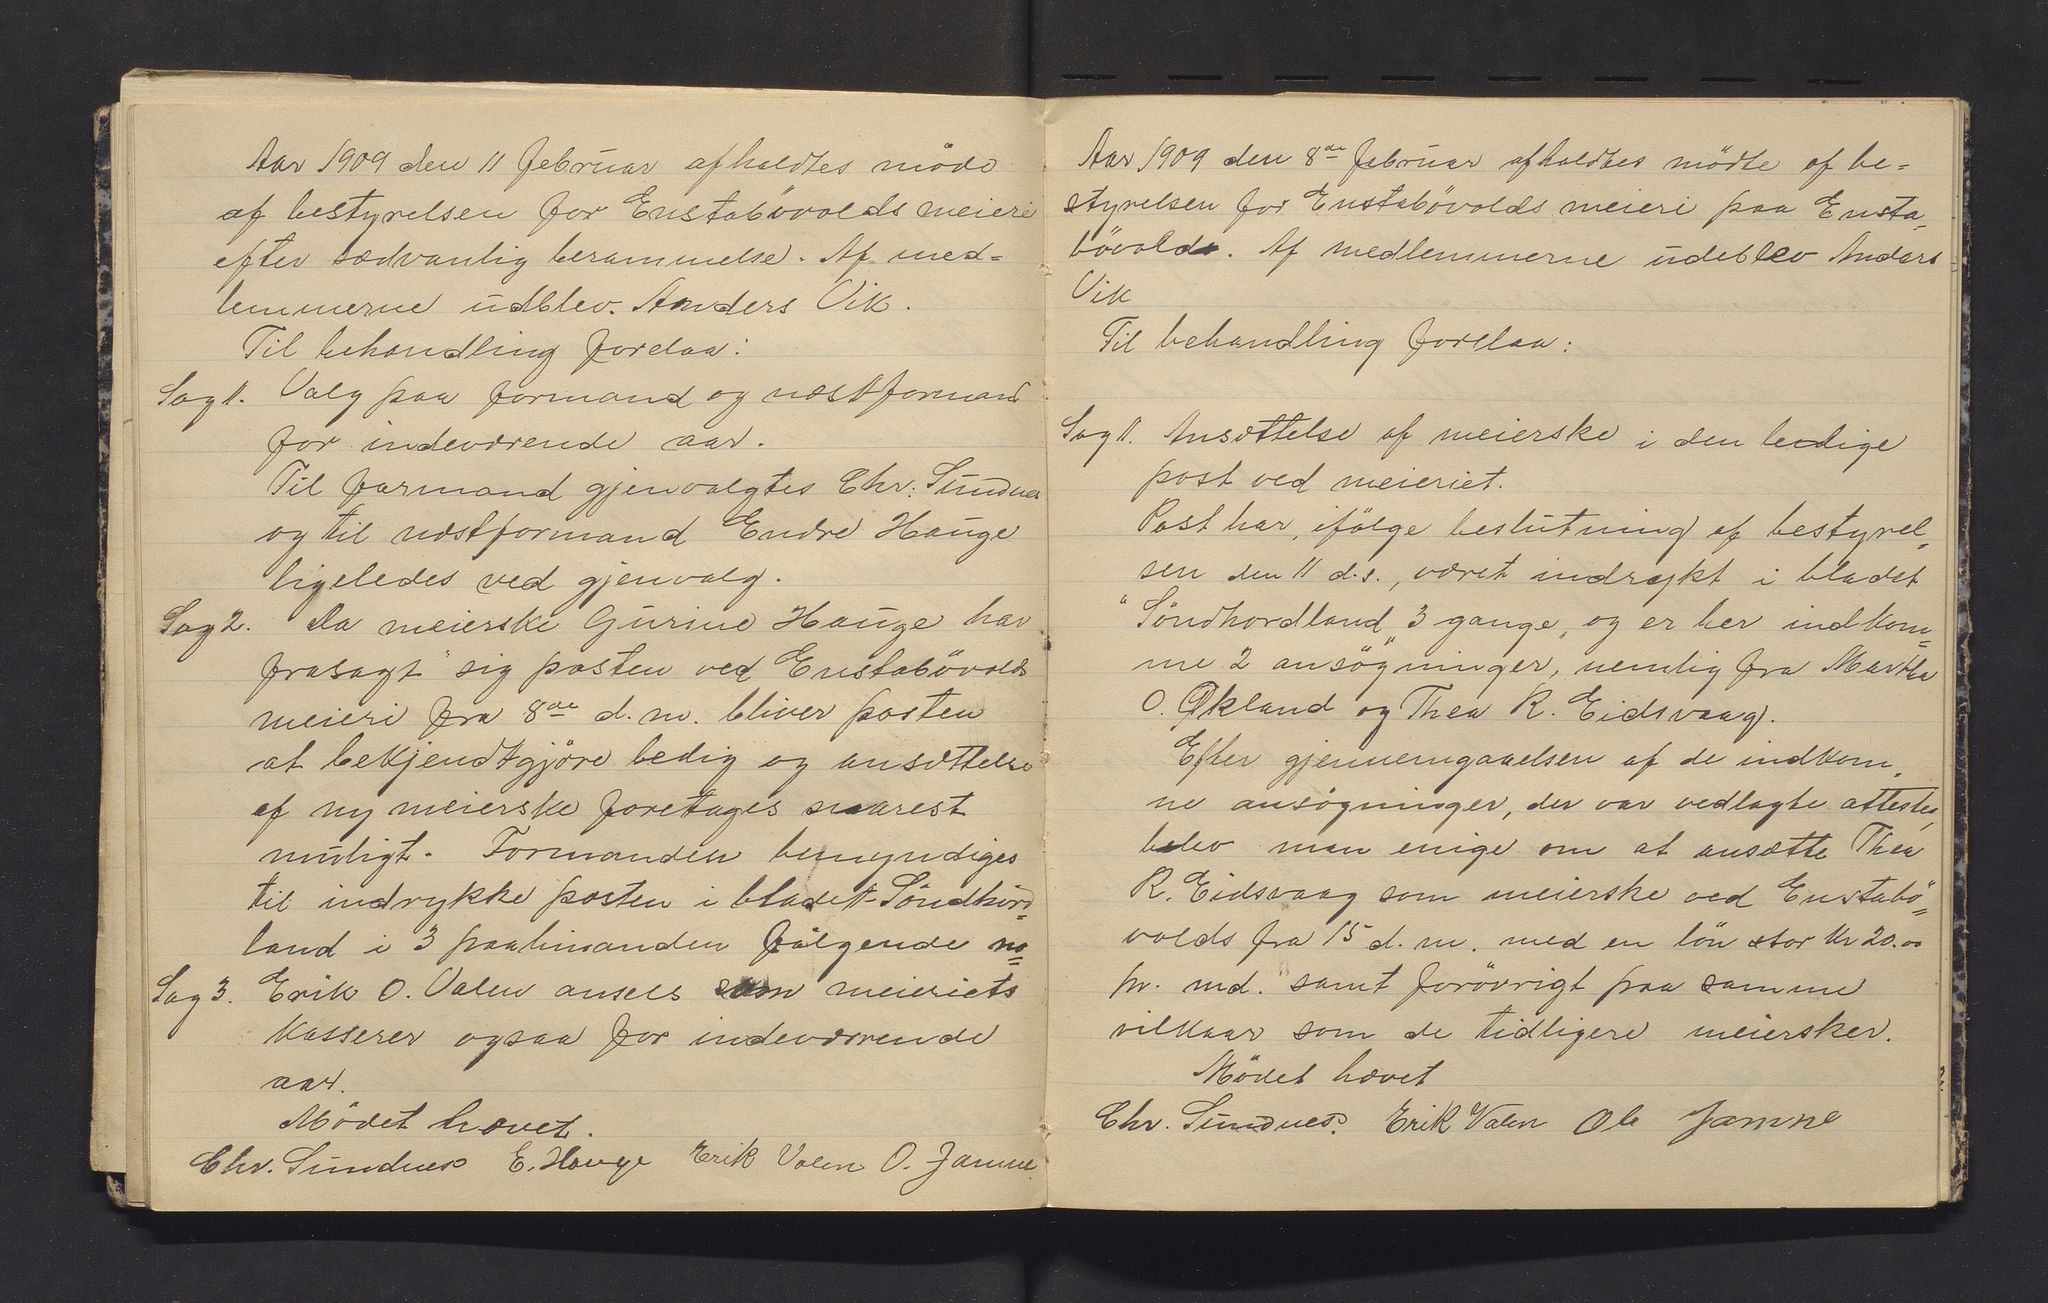 Aar 1909 den 11 februar afholdtes möde
af bestyrelsen for Enstabövolds meieri
efter sædvanlig berammelse. Af med=
lemmerne udblev. Anders Vik.
Til behandling forelaa:
Sag 1. Valg paa formand og næstformand
for indeværende aar.
Til formand gjenvalgtes Chr. Sundnes
og til næstformand Endre Hauge
ligeledes ved gjenvalg.
Sag 2. Da meierske Gurine Hauge har
frasagt sig posten ved Enstabövolds
meieri fra 8de d.m. bliver posten
at bekjendtgjöre ledig og ansættelse
af ny meierske foretages snarest
muligt. Formanden bemyndiges
til indrykke posten i bladet Söndhord=
land i 3 paahinanden fölgende no=
Sag 3. Erik O. Valen ansees som meieriets
kasserer ogsaa for indeværende
aar.
Mödet hævet.
Chr. Sundnes E. Hauge Erik Valen O. Jamne
Aar 1909 den 8de februar afholdtes mödte af be=
styrelsen for Enstabövolds meieri paa Ensta=
bövold. Af medlemmerne udeblev Anders
Vik
Til behandling forelaa:
Sag 1. Ansættelse af meierske i den ledige
post ved meieriet.
Post har, ifölge beslutning af bestyrel=
sen den 11 d.s., været indrykt i bladet
"Söndhordland" 3 gange, og er her indkom=
me 2 ansögninger, nemlig fra Martha
O. Økland og Thea R. Eidsvaag.
Efter gjennemgaaelsen af de indkom=
ne ansögninger, der var vedlagte attester,
blev man enige om at ansætte Thea
R. Eidsvaag som meierske ved Enstabö=
volds fra 15 d.m. med en lön stor Kr 20.00
pr. md. samt forövrigt paa samme
vilkaar som de tidligere meiersker.
Mödet hævet
Chr. Sundnes. Erik Valen Ole Jamne